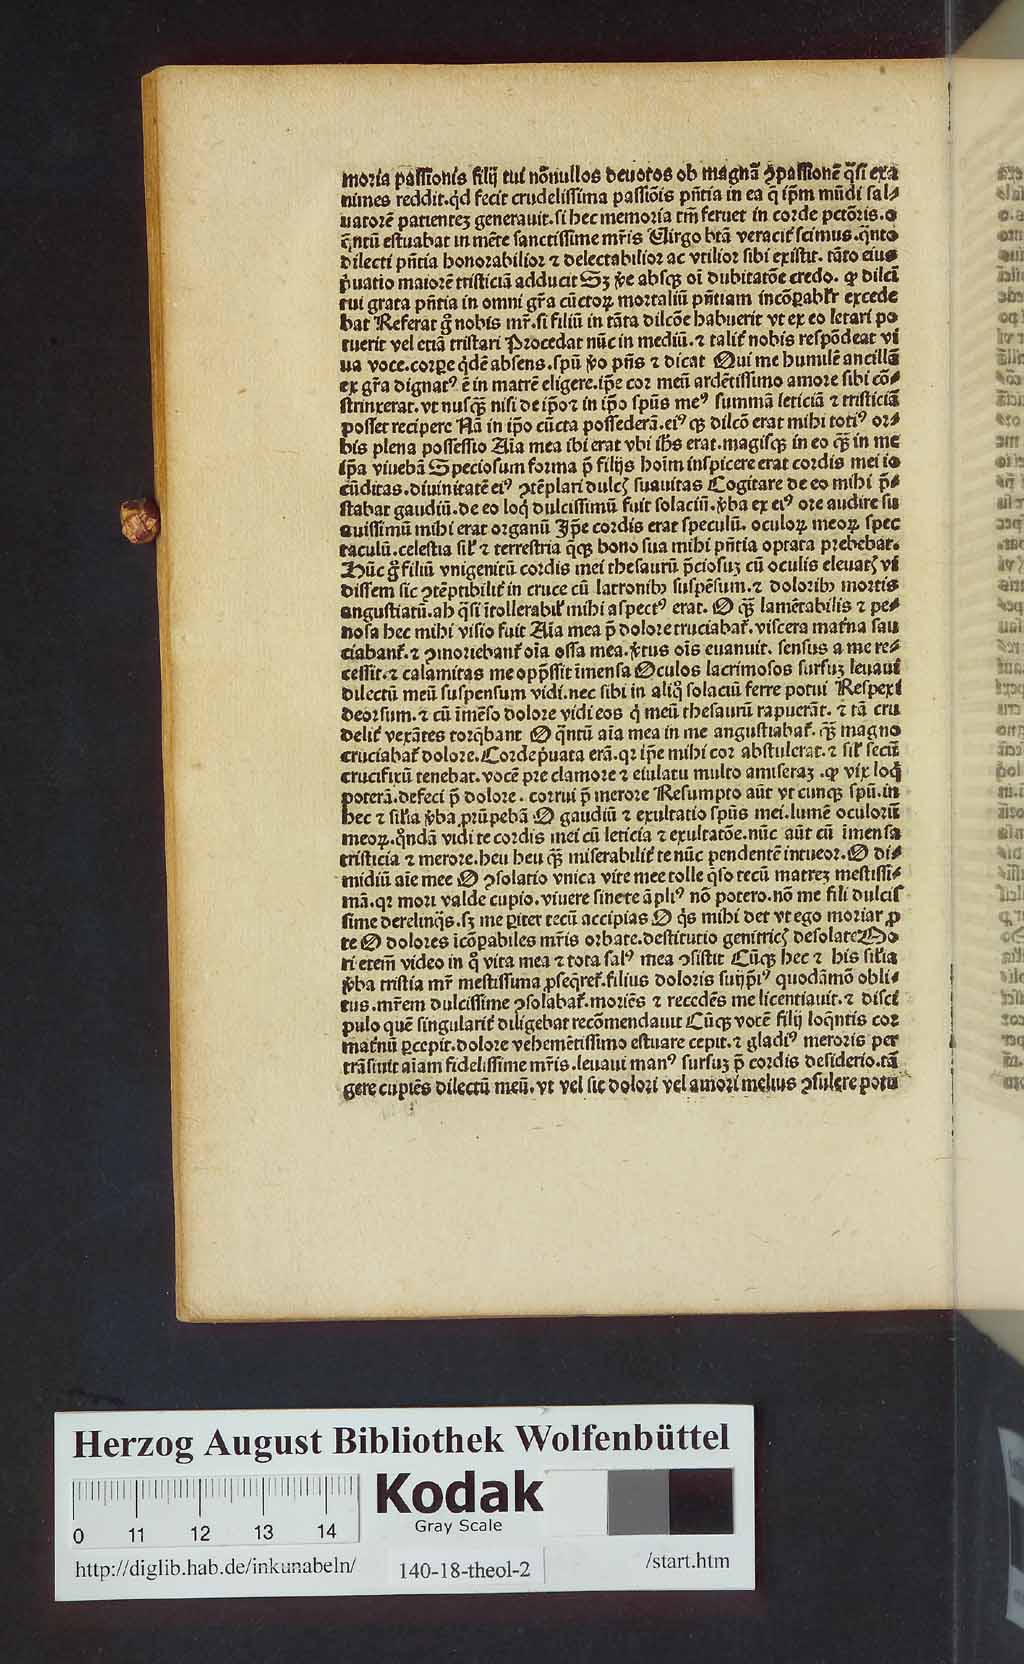 moria passionis filij tui nõnullos deuotos ob magnã ꝯpassionẽ q̃si exa
nimes reddit. qđ fecit crudelissima passiõis pñtia in ea q̃ ip̃m mũdi sal⸗
uatorẽ patientez generauit. si hec memoria tm̃ feruet in corde pctõris. o
q̃ntũ estuabat in mẽte sanctissime mr̃is Uirgo btã veracit᷑ scimus. q̃nto
dilecti pñtia honorabilior ⁊ delectabilior ac vtilior sibi existit. tãto eius
p̃uatio maiorẽ tristiciã adducit Sꝫ ṽe absqꝫ oĩ dubitatõe credo. ꝙ dilcĩ
tui grata pñtia in omni gr̃a cũctoꝝ mortaliũ pñtiam incõꝑabilr̃ excede
bat Referat g̊ nobis mr̃. si filiũ in tãta dilcõe habuerit vt ex eo letari po
tuerit vel etiã tristari Procedat nũc in mediũ. ⁊ talit᷑ nobis respõdeat vi
ua voce. corꝑe q̇dẽ absens. spũ ṽo pñs ⁊ dicat Qui me humilẽ ancillã
ex gr̃a dignatꝰ ẽ in matrẽ eligere. ip̃e cor meũ ardẽtissimo amore sibi cõ⸗
strinxerat. vt nusq̃ꝫ nisi de ip̃o ⁊ in ip̃o spũs meꝰ summã leticiã ⁊ tristiciã
posset recipere Nã in ip̃o cũcta possederã. eiꝰ qꝫ dilcõ erat mihi totiꝰ or⸗
bis plena possessio Aĩa mea ibi erat vbi ihs̃ erat. magisqꝫ in eo q̃ꝫ in me
ip̃a viuebã Speciosum forma p̃ filijs hoĩm inspicere erat cordis mei io
cũditas. diuinitatẽ eiꝰ ꝯtẽplari dulcꝭ suauitas Cogitare de eo mihi p̃⸗
stabat gaudiũ. de eo loq̇ dulcissimũ fuit solaciũ. ṽba ex eiꝰ ore audire su
auissimũ mihi erat organũ Ip̃e cordis erat speculũ. oculoꝝ meoꝝ spec
taculũ. celestia sil᷑ ⁊ terrestria q̃qꝫ bono sua mihi pñtia optata prebebat.
Hũc g̊ filiũ vnigenitũ cordis mei thesaurũ p̃ciosuꝫ cũ oculis eleuatꝭ vi
dissem sic ꝯtẽptibilit᷑ in cruce cũ latronibꝫ suspẽsum. ⁊ doloribꝫ mortis
angustiatũ. ah q̃si ĩtollerabil᷑ mihi aspectꝰ erat. O q̃ꝫ lamẽtabilis ⁊ pe⸗
nosa hec mihi visio fuit Aĩa mea p̃ dolore cruciabat᷑. viscera mat᷑na sau
ciabant᷑. ⁊ ꝯmoriebant᷑ oĩa ossa mea. ṽtus oĩs euanuit. sensus a me re⸗
cessit. ⁊ calamitas me opp̃ssit ĩmensa Oculos lacrimosos sursuꝫ leuaui
dilectũ meũ suspensum vidi. nec sibi in aliq̊ solaciũ ferre potui Respexi
deorsum. ⁊ cũ ĩmẽso dolore vidi eos q̇ meũ thesaurũ rapuerãt. ⁊ tã cru
delit᷑ vexãtes torq̃bant O q̃ntũ aĩa mea in me angustiabat᷑. q̃ꝫ magno
cruciabat᷑ dolore. Corde p̃uata erã. qꝛ ip̃e mihi cor abstulerat. ⁊ sil᷑ secũ
crucifixũ tenebat. vocẽ pre clamore ⁊ eiulatu multo amiseraꝫ. ꝙ vix loq̇
poterã. defeci p̃ dolore. corrui p̃ merore Resumpto aũt vtcunqꝫ spũ. in
hec ⁊ sil᷑ia ṽba prũpebã O gaudiũ ⁊ exultatio spũs mei. lumẽ oculorũ
meoꝝ. q̊ndã vidi te cordis mei cũ leticia ⁊ exultatõe. nũc aũt cũ ĩmensa
tristicia ⁊ merore. heu heu q̃ꝫ miserabilit᷑ te nũc pendentẽ intueor. O di⸗
midiũ aĩe mee O ꝯsolatio vnica vite mee tolle q̃so tecũ matreꝫ mestissi⸗
mã. qꝛ mori valde cupio. viuere sine te ãpliꝰ nõ potero. nõ me fili dulcis
sime derelinq̃s. sꝫ me ꝑiter tecũ accipias O q̇s mihi det vt ego moriar ꝓ
te O dolores ĩcõꝑabiles mr̃is orbate. destitutio genitricꝭ desolate Mo
ri eteñi video in q̊ vita mea ⁊ tota salꝰ mea ꝯsistit Cũqꝫ hec ⁊ his sil᷑ia
ṽba tristia mr̃ mestissima ꝓseq̃ret᷑. filius doloris sui ip̃iꝰ quodãmõ obli⸗
tus. mr̃em dulcissime ꝯsolabat᷑. moriẽs ⁊ recedẽs me licentiauit. ⁊ disci
pulo quẽ singularit᷑ diligebat recõmendauit Cũqꝫ vocẽ filij loq̃ntis cor
mat᷑nũ ꝑcepit. dolore vehemẽtissimo estuare cepit. ⁊ gladiꝰ meroris per
trãsiuit aĩam fidelissime mr̃is. leuaui manꝰ sursuꝫ p̃ cordis desiderio. tã
gere cupiẽs dilectũ meũ. vt vel sic dolori vel amori melius ꝯsulere potu
Herzog August Bibliothek Wolfenbüttel
0 11 12 13 14
Kodak
Gray Scale
http://diglib.hab.de/inkunabeln/
140-18-theol-2
/start.htm